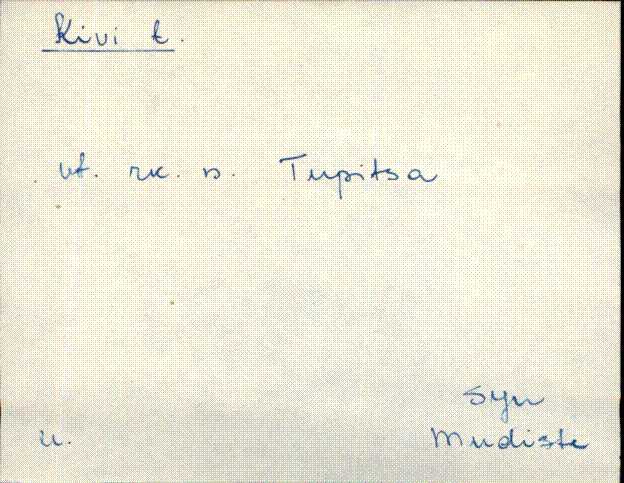 Kivi t.
vt. rk. s. Tupitsa
Syn
u. Mudiste